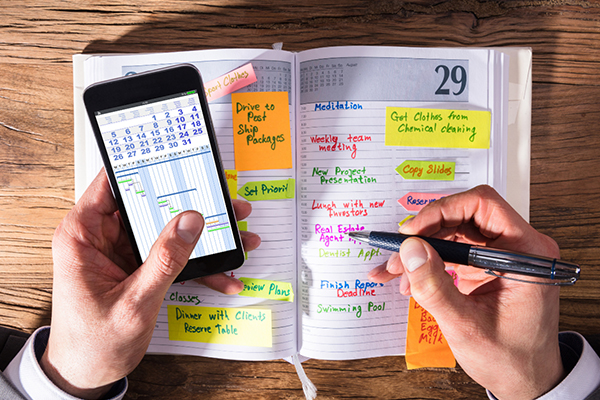 1 2 3 4
5 6 7 8 9 10 11
12 13 14 15 16 17 18
19 20 21 22 23 24 25
26 27 28 29 30 31
port Clothes
Drive to
Post
Ship
Packages
Set Priorit
eview Plans
Classes
Dinner with Clients
Reserve Table
29
Meditation
Weekly team
meeting
New Project
Presentation
Lunch with new
Investors
Real Estate
Agent
Dentist Appt.
Finish Reports
Deadline
Swimming Pool
Get Clothes from
Chemical cleaning
Copy Slides
Eggs
Milk